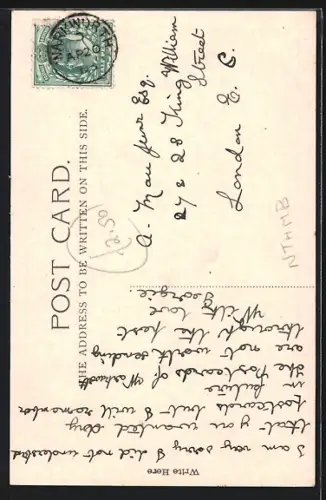 WARKWORTH
AP
POST CARD.
THE ADDRESS TO BE WRITTEN ON THIS SIDE.
A. Maufe Esq.
27 & 28 King William
Street
London E. C.
12.50
NTHMB
Write Here
I am very sorry I did not understand
that you wanted any
postcards but I will remember
in future
the postcards of Warkworth
are not worth sending
through the post
With love
Georgie.